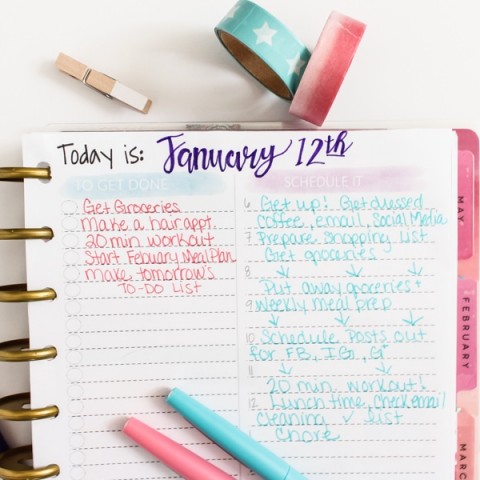 Today is: January 12th
TO GET DONE
Get Groceries
Make a hair appt.
20 min workout
Start Febuary Meal Plan
make tomorrow's
TO-DO LIST
SCHEDULE IT
6 Get up! Get dressed
Coffee, email, Social Media
7 Prepare Shopping List
Get groceries
8
Put away groceries +
9 Weekly meal prep
10 Schedule Posts out
for FB, IG, G+
11
20 min workout!
12 Lunch time, Check email
Cleaning ✓ List
Chore
MAY
FEBRUARY
MARCH